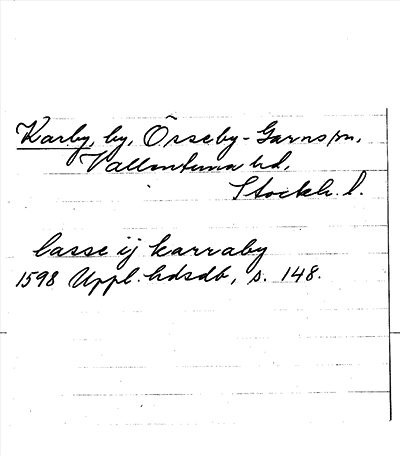 Karby, by, Össeby-Garns sn,
Vallentuna hd,
Stockh. l.
lasse ij karraby
1598 Uppl. hdsdb, s. 148.